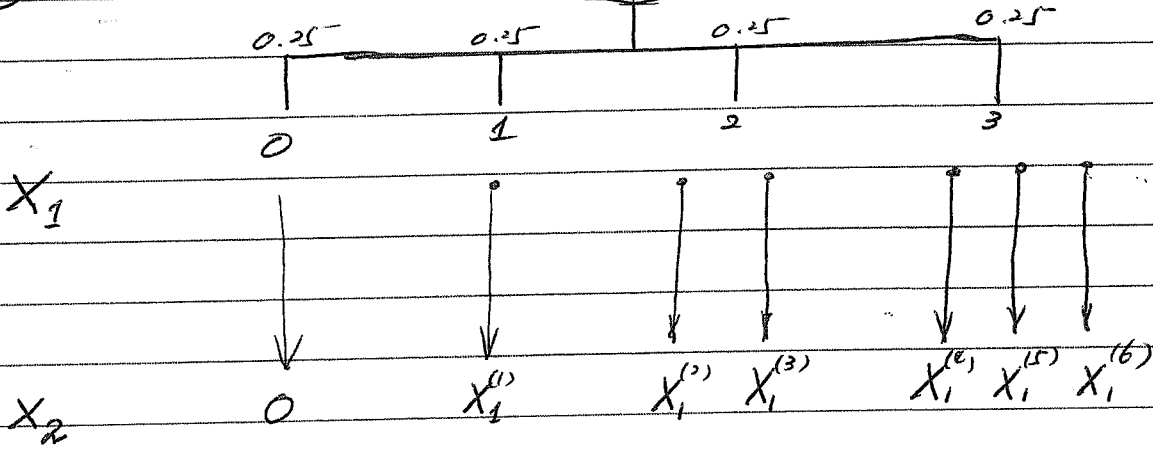 0.25 0.25 0.25 0.25
0 1 2 3
X₁
X₂ 0 X₁⁽¹⁾ X₁⁽²⁾ X₁⁽³⁾ X₁⁽⁴⁾ X₁⁽⁵⁾ X₁⁽⁶⁾